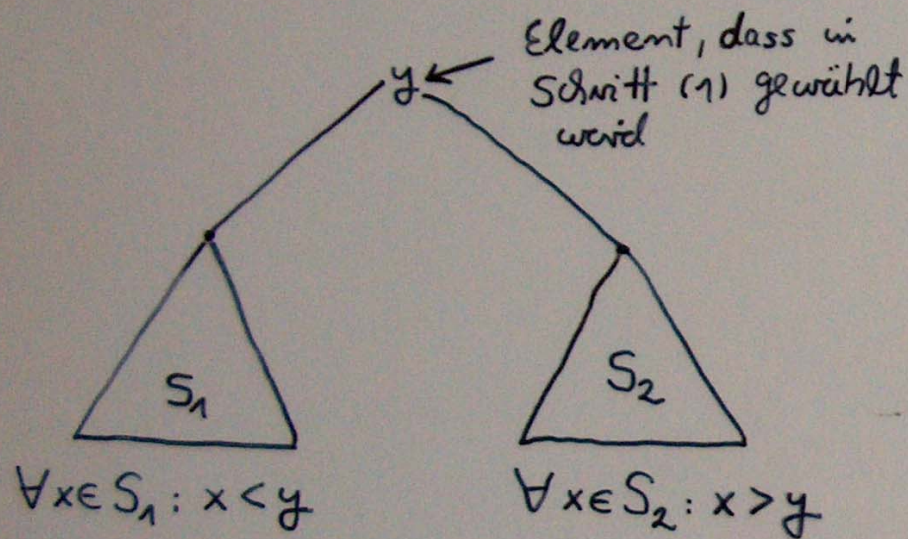 Element, dass in
y
Schritt (1) gewählt
wird
S₁
S₂
∀x∈S₁: x<y
∀x∈S₂: x>y